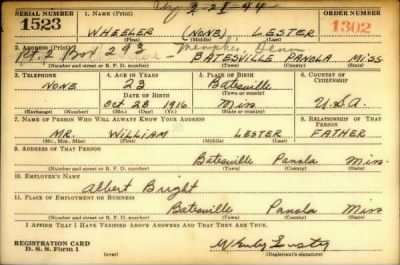 2-28-44
SERIAL NUMBER 1. NAME (Print) ORDER NUMBER
1523 WHEELER (NONE) LESTER 1302
(First) (Middle) (Last)
2. ADDRESS (Print) 293 Memphis, Tenn
Rt. 2 Box BATESVILLE PANOLA MISS
(Number and street or R. F. D. number) (Town) (County) (State)
3. TELEPHONE 4. AGE IN YEARS 5. PLACE OF BIRTH 6. COUNTRY OF CITIZENSHIP
NONE 23 Batesville
DATE OF BIRTH (Town or county)
Oct 28 1916 Miss U.S.A.
(Exchange) (Number) (Mo.) (Day) (Yr.) (State or country)
7. NAME OF PERSON WHO WILL ALWAYS KNOW YOUR ADDRESS 8. RELATIONSHIP OF THAT PERSON
MR. WILLIAM LESTER FATHER
(Mr., Mrs., Miss) (First) (Middle) (Last)
9. ADDRESS OF THAT PERSON
Batesville Panola Miss.
(Number and street or R. F. D. number) (Town) (County) (State)
10. EMPLOYER'S NAME
Albert Bright
11. PLACE OF EMPLOYMENT OR BUSINESS
Batesville Panola Miss
(Number and street or R. F. D. number) (Town) (County) (State)
I AFFIRM THAT I HAVE VERIFIED ABOVE ANSWERS AND THAT THEY ARE TRUE.
REGISTRATION CARD
D. S. S. Form 1 (Registrant's signature)